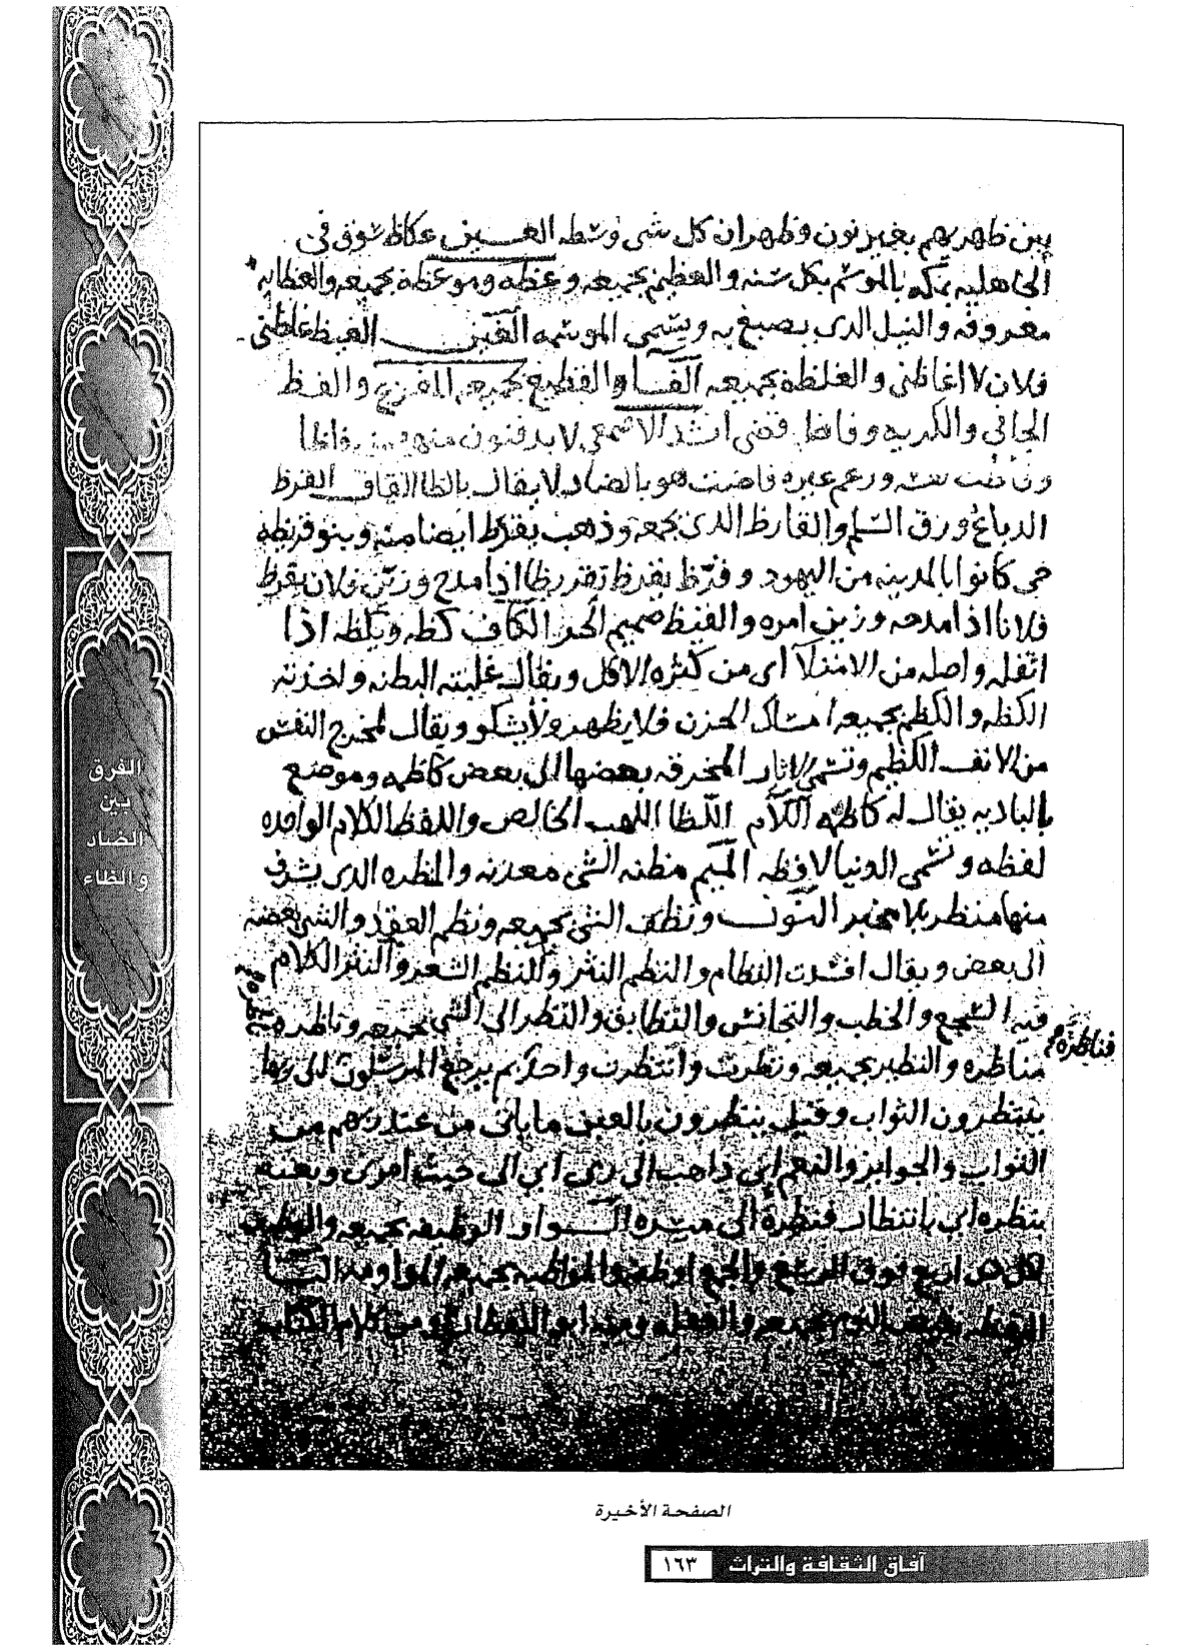 بين ظهريهم بغير نون وظهران كل شى وسطه العين عكاظ سوق فى
الجاهليه بمكه بالموسم بكل سنه والعظيم بجميعه وعظه وموعظة بجميعه والعظايه
معروفه والنيل الذى يصبغ به ويسمى الغين الغيظ غاظنى
فلان لا اغاظنى والغلظة بجميعه الفا والفظيع بجميعه المفزع والفظ
الجافي والكريه وفاظ قضى انشد الاصمعي لا يدفنون منهم من فاظا
وزعم غيره فاضت هو بالضاد لا يقال بالظا القاف القرظ
الدباغ ورق السلم والقارظ الذى يجمعه وذهب يقرظ ايضا منه وبنو قريظه
حى كانوا بالمدينه من اليهود وقرظ يقرظ تقريظا اذا مدح وزين فلان يقرظ
فلانا اذا مدحه وزين امره والقيظ صميم الحر الكاف كظه ويكظه اذا
اثقله واصله من الامتلا اى من كثره الاكل ويقال غلبته البطنه واخذته
الكظه والكظم بجميعه امساك الحزن فلا يظهر ولا يشكو ويقال لمخرج النفس
من الانف الكظيم وتسمى الابار المخرقه بعضها الى بعض كاظمه وموضع
بالباديه يقال له كاظمه اللام اللظا اللهب الخالص واللفظ الكلام الواحده
لفظه وتسمى الدنيا لافظه الميم مظنه الشى معدنه والمنظره الذى يشرف
منها منظر بلا مخبر النون ونظف الشى بجميعه ونظم العقد والشى بعضه
الى بعض ويقال افسدت النظام والنظم النثر والنظم الشعر والنثر الكلام
فيه السجع والخطب والتجانس والتطابق والنظر الى الشى بجميعه وناظره
فناظرة
مناظره والنظير بجميعه ونظرت وانتظرت واحد بم يرجع المرسلون الى ربها
ينتظرون الثواب وقيل ينتظرون بالعين ما ياتى من عند ربهم من
الثواب والجوايز والنعم انى ذاهب الى ربى اى الى حيث امرنى وبعثه
ينظره اى بانتظار فنظرة الى ميسره الواو الوظيفه بجميعه والوظيف
لكل ذى اربع فوق الرسغ والجمع اوظفه والمواظبه بجميعه المداومه اليا
اليقظه نقيض النوم بجميعه
الصفحة الأخيرة
آفاق الثقافة والتراث ١٦٣
الفرق
بين
الضاد
والظاء